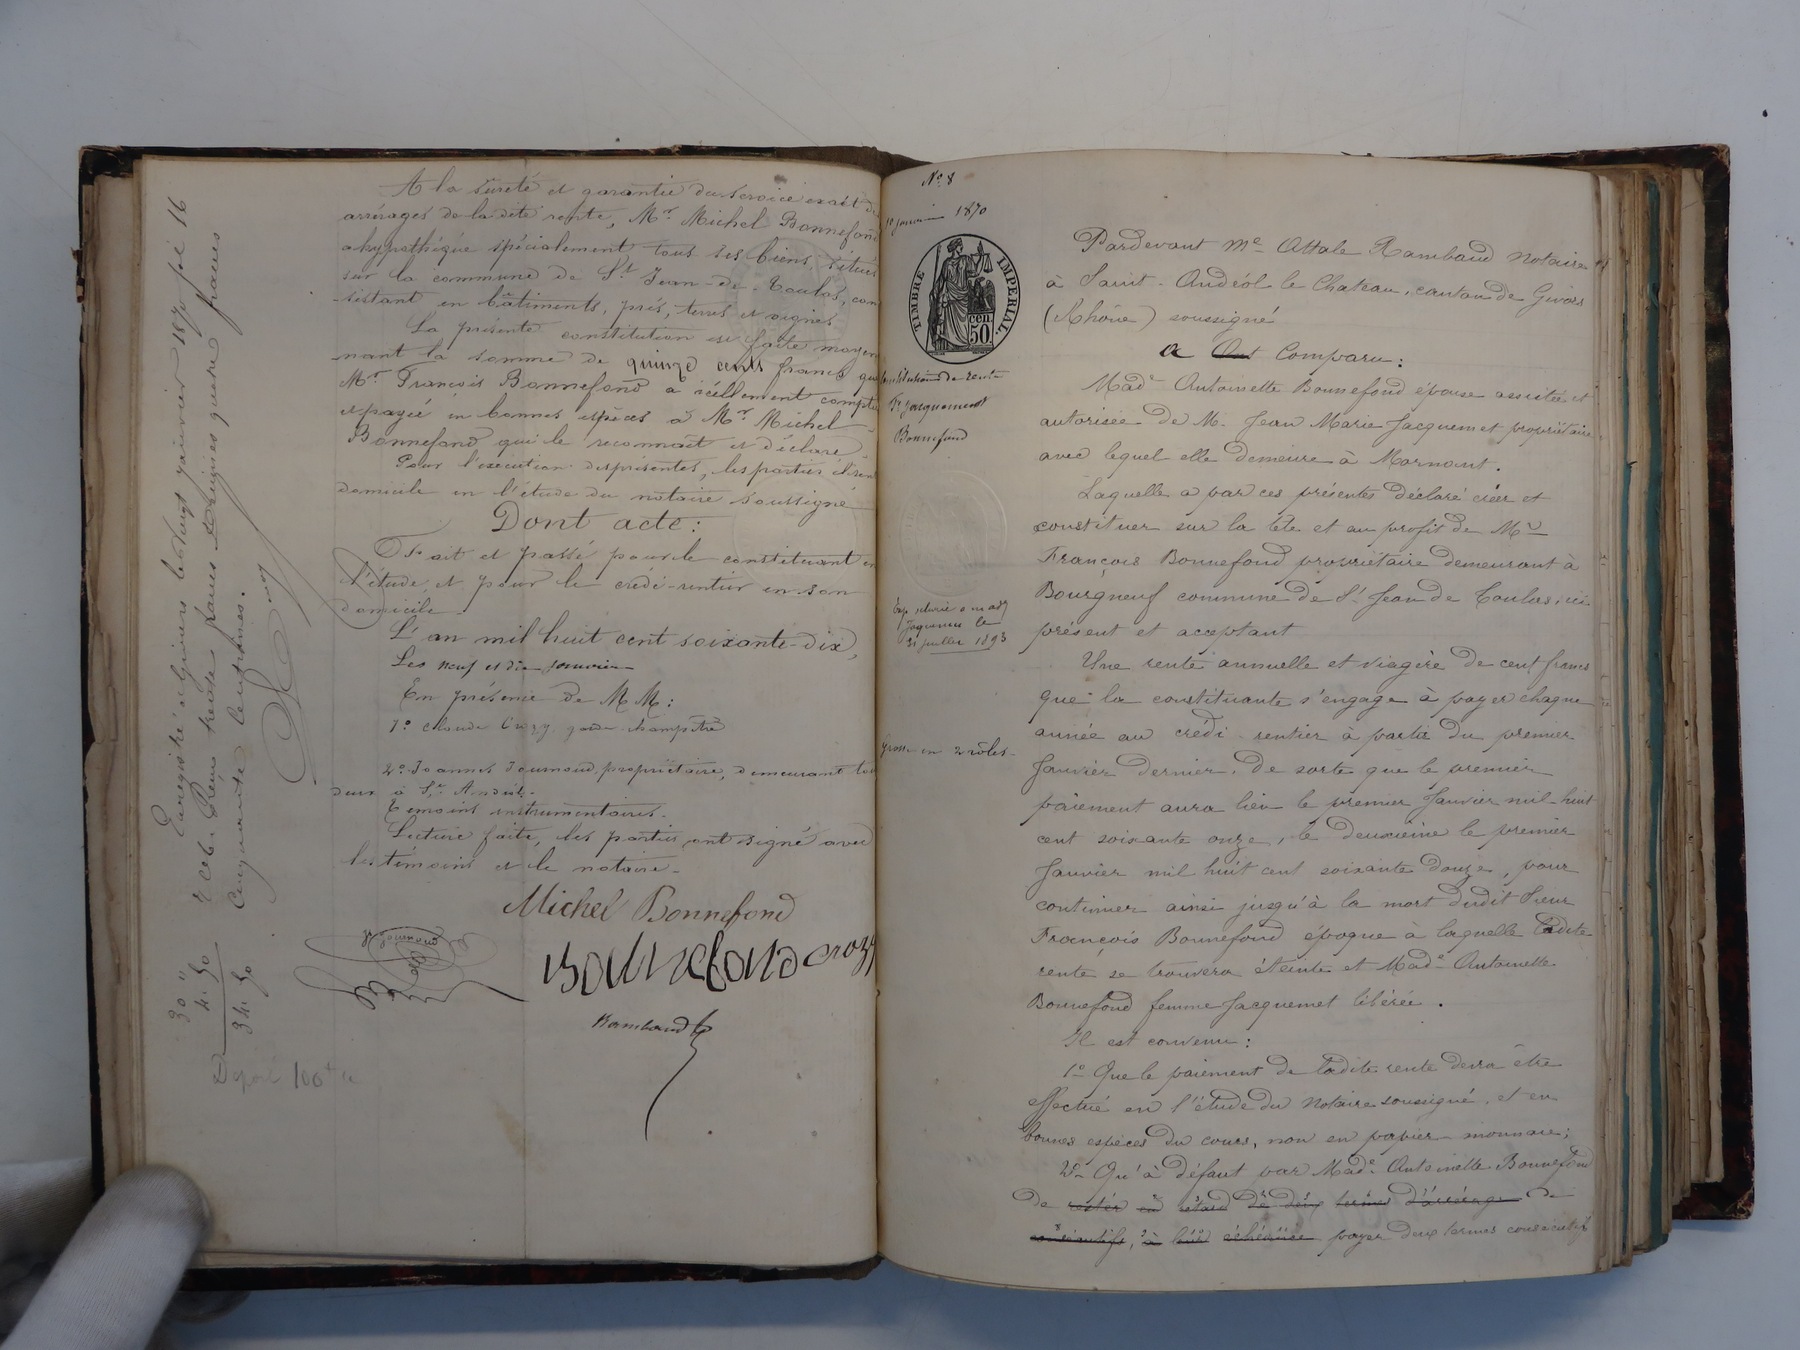 A la sûreté et garantie du service exact des
arrérages de la dite rente, Mr. Michel Bonnefond
a hypothéqué spécialement tous ses biens, situés
sur la commune de St. Jean-de-Toulas, con
sistant en bâtiments, prés, terres et vignes
La présente constitution est faite moyen
nant la somme de quinze cents francs que
Mr. François Bonnefond a réellement comptée
et payée en bonnes espèces à Mr. Michel
Bonnefond qui le reconnait et déclare
Pour l'exécution des présentes, les parties élisent
domicile en l'étude du notaire soussigné
Dont acte :
Fait et passé pour le constituant en
l'étude, et pour le crédi-rentier en son
domicile
L'an mil huit cent soixante-dix,
Les neuf et dix janvier
En présence de MM :
1o Claude Crozy garde champêtre
2o Joannes Journoud, propriétaire, demeurant tous
deux à St. Andéol.
Témoins instrumentaires.
Lecture faite, les parties ont signé avec
les témoins et le notaire.
Michel Bonnefond
Journoud
Bonnefond Crozy
Rambaud
Enregistré à Givors le vingt janvier 1870 fol 16
Reçu trente francs Décimes quatre francs
Cinquante centimes.
30 "
4. 50
34. 50
Dépôt 100
No. 8
10 janvier 1870
TIMBRE IMPERIAL.
50 cen.
Constitution de rente
Fe Jacquemet
Bonnefond
Jaquemet le
31 juillet 1893
Grosse en 2 rôles
Pardevant Me Attale Rambaud Notaire
à Saint-Andéol le Chateau, canton de Givors
(Rhône) soussigné
a Ont Comparu :
Made Antoinette Bonnefond épouse assistée et
autorisée de M. Jean Marie Jacquemet propriétaire
avec lequel elle demeure à Mornant.
Laquelle a par ces présentes déclaré créer et
constituer sur la tête et au profit de Mr
François Bonnefond propriétaire demeurant à
Bourgneuf commune de St Jean de Toulas, ici
présent et acceptant
Une rente annuelle et viagère de cent francs
que la constituante s'engage à payer chaque
année au crédi-rentier à partir du premier
Janvier dernier, de sorte que le premier
paiement aura lieu le premier Janvier mil-huit
cent soixante onze, le deuxième le premier
Janvier mil huit cent soixante douze, pour
continuer ainsi jusqu'à la mort dudit Sieur
François Bonnefond époque à laquelle ladite
rente se trouvera éteinte et Made Antoinette
Bonnefond femme Jacquemet libérée.
Il est convenu :
1o Que le paiement de ladite rente devra être
effectué en l'étude du Notaire soussigné, et en
bonnes espèces du cours, non en papier-monnaie ;
2o Qu'à défaut par Made Antoinette Bonnefond
de rester en retard de deux termes d'arrérage de
consécutifs, à leur échéance payer deux termes consécutifs